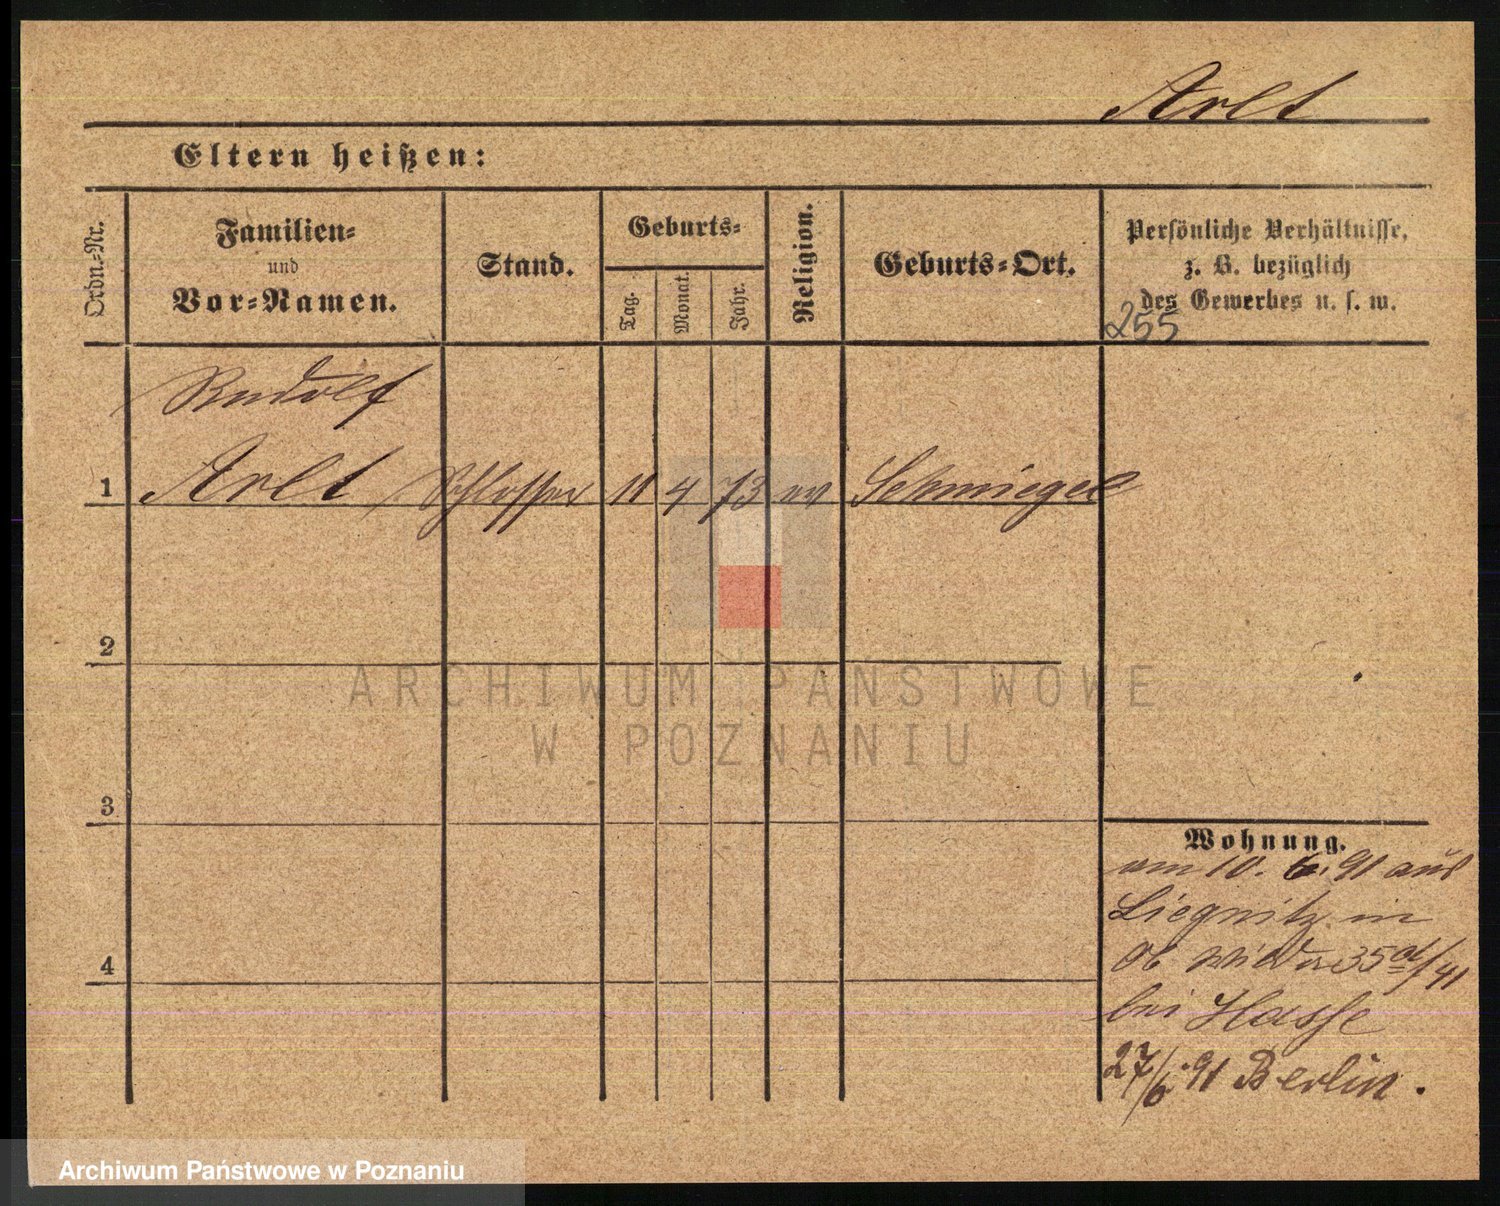 Arlt
Eltern heißen:
Ordn.-Nr.
Familien-
und
Vor-Namen.
Stand.
Geburts-
Tag.
Monat.
Jahr.
Religion.
Geburts-Ort.
Persönliche Verhältnisse,
z. B. bezüglich
des Gewerbes u. s. w.
255
Rudolf
1 Arlt, Schlosser 11 4 73 ev Schmiegel
2
ARCHIWUM PAŃSTWOWE
W POZNANIU
3
4
Wohnung.
am 10. 6. 91 aus
Liegnitz in
Ob Wilda 35 a/41
bei Hasse
27/6 91 Berlin.
Archiwum Państwowe w Poznaniu